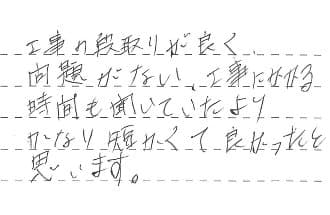 工事の段取りが良く、
問題がない、工事にかかる
時間も聞いていたより
かなり短かくて良かったと
思います。